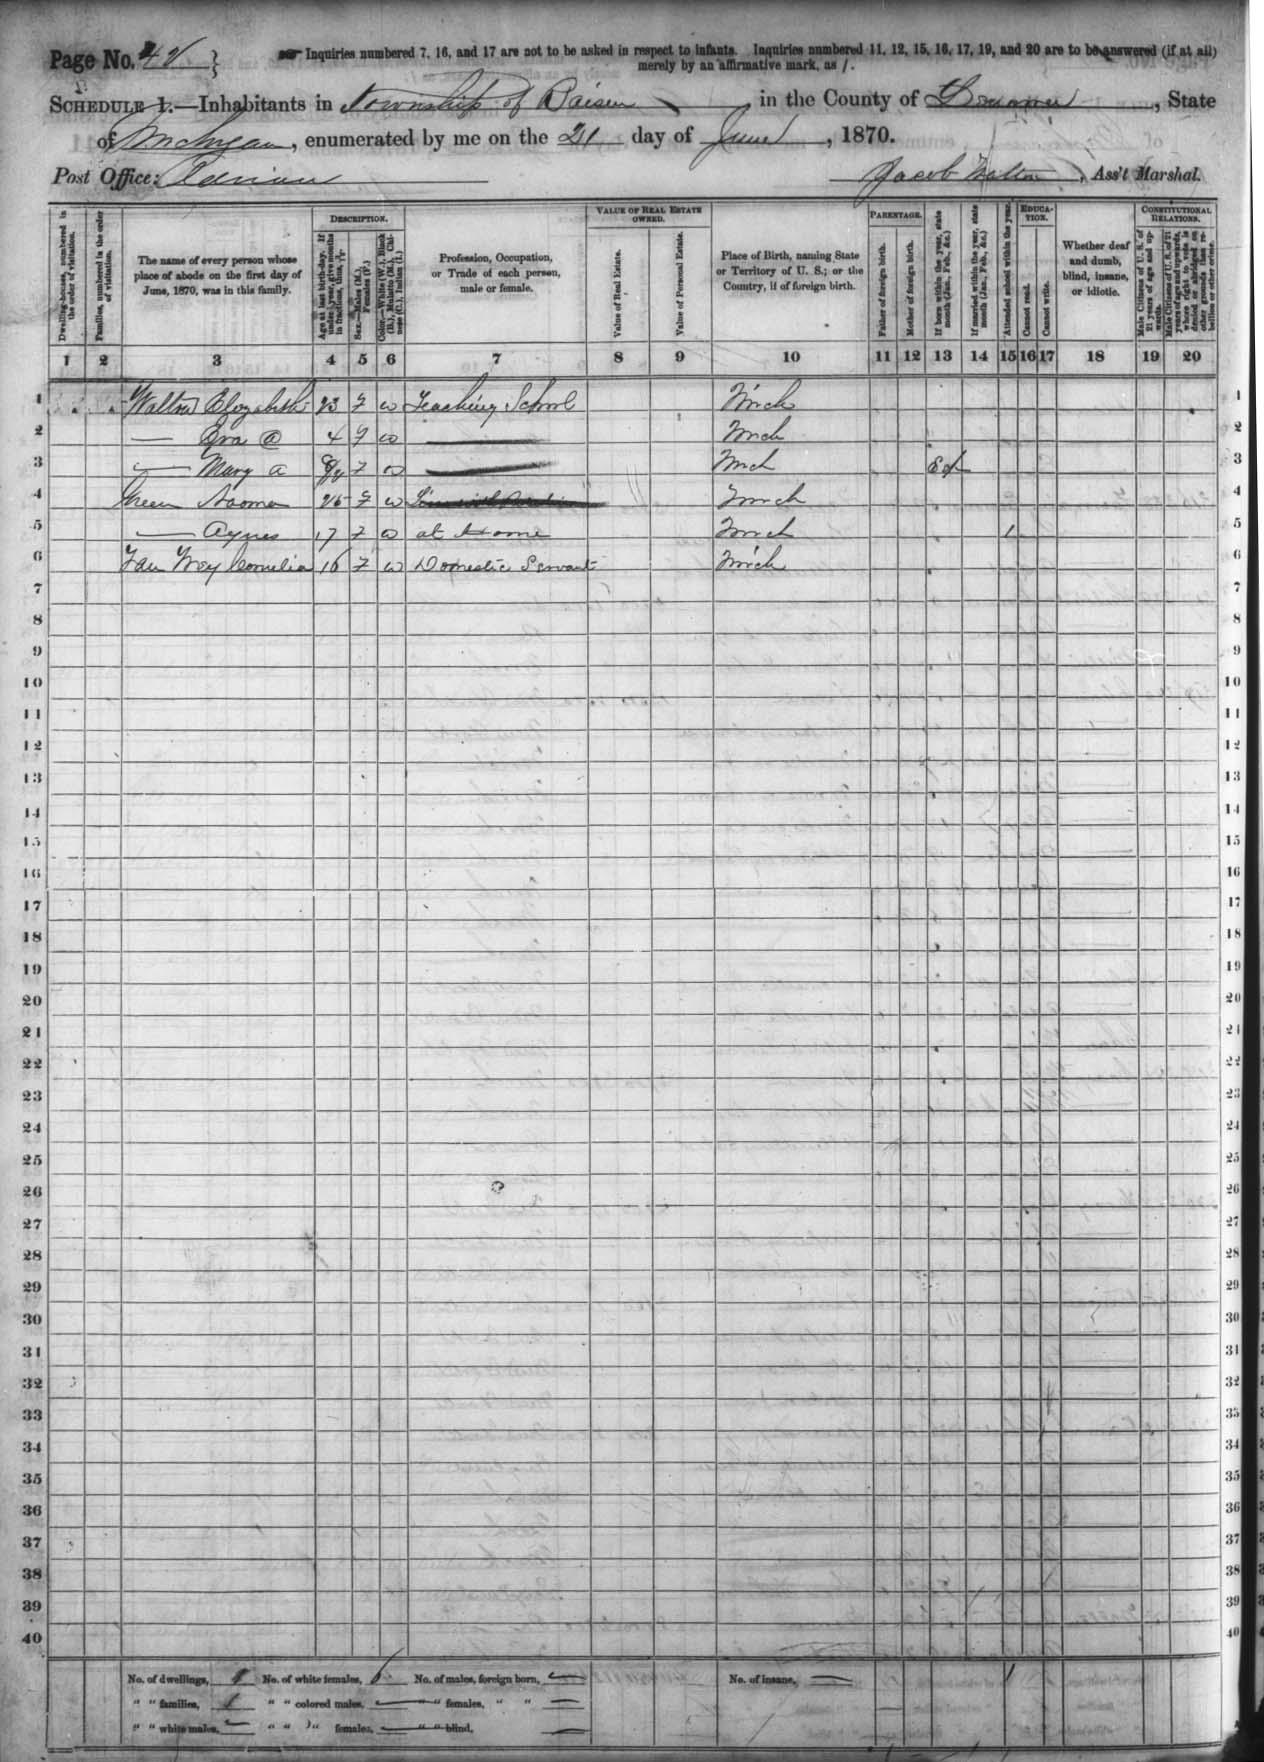 Page No. 48 } Inquiries numbered 7, 16, and 17 are not to be asked in respect to infants. Inquiries numbered 11, 12, 15, 16, 17, 19, and 20 are to be answered (if at all)
merely by an affirmative mark, as /.
SCHEDULE 1.—Inhabitants in Township of Raisin, in the County of Lenawee, State
of Michigan, enumerated by me on the 21 day of June, 1870.
Post Office: Adrian Jacob Walton, Ass't Marshal.
Dwelling-houses, numbered in the order of visitation.
Families, numbered in the order of visitation.
The name of every person whose place of abode on the first day of June, 1870, was in this family.
DESCRIPTION.
Age at last birth-day. If under 1 year, give months in fractions, thus,
Sex.—Males (M.), Females (F.)
Color.—White (W.), Black (B.), Mulatto (M.), Chinese (C.), Indian (I.)
Profession, Occupation, or Trade of each person, male or female.
VALUE OF REAL ESTATE OWNED.
Value of Real Estate.
Value of Personal Estate.
Place of Birth, naming State or Territory of U. S.; or the Country, if of foreign birth.
PARENTAGE.
Father of foreign birth.
Mother of foreign birth.
If born within the year, state month (Jan. Feb., &c.)
If married within the year, state month (Jan. Feb., &c.)
Attended school within the year.
EDUCATION.
Cannot read.
Cannot write.
Whether deaf and dumb, blind, insane, or idiotic.
CONSTITUTIONAL RELATIONS.
Male Citizens of U. S. of 21 years of age and upwards.
Male Citizens of U. S. of 21 years of age and upwards, where right to vote is denied or abridged on other grounds than rebellion or other crime.
1 2 3 4 5 6 7 8 9 10 11 12 13 14 15 16 17 18 19 20
1 Walton Elizabeth 23 F W Teaching School Mich 1
2 — Eva A 4 F W — Mich 2
3 — Mary A F W — Mich 3
4 Green Naomi 25 F W Mich 4
5 — Agnes 17 F W at Home Mich 1 5
6 Cornelia 16 F W Domestic Servant Mich 6
7 7
8 8
9 9
10 10
11 11
12 12
13 13
14 14
15 15
16 16
17 17
18 18
19 19
20 20
21 21
22 22
23 23
24 24
25 25
26 26
27 27
28 28
29 29
30 30
31 31
32 32
33 33
34 34
35 35
36 36
37 37
38 38
39 39
40 40
No. of dwellings, 1 No. of white females, 6 No. of males, foreign born, — No. of insane, —
" " families, 1 " " colored males, — " " females, " " —
" " white males, — " " " females, — " " blind, —